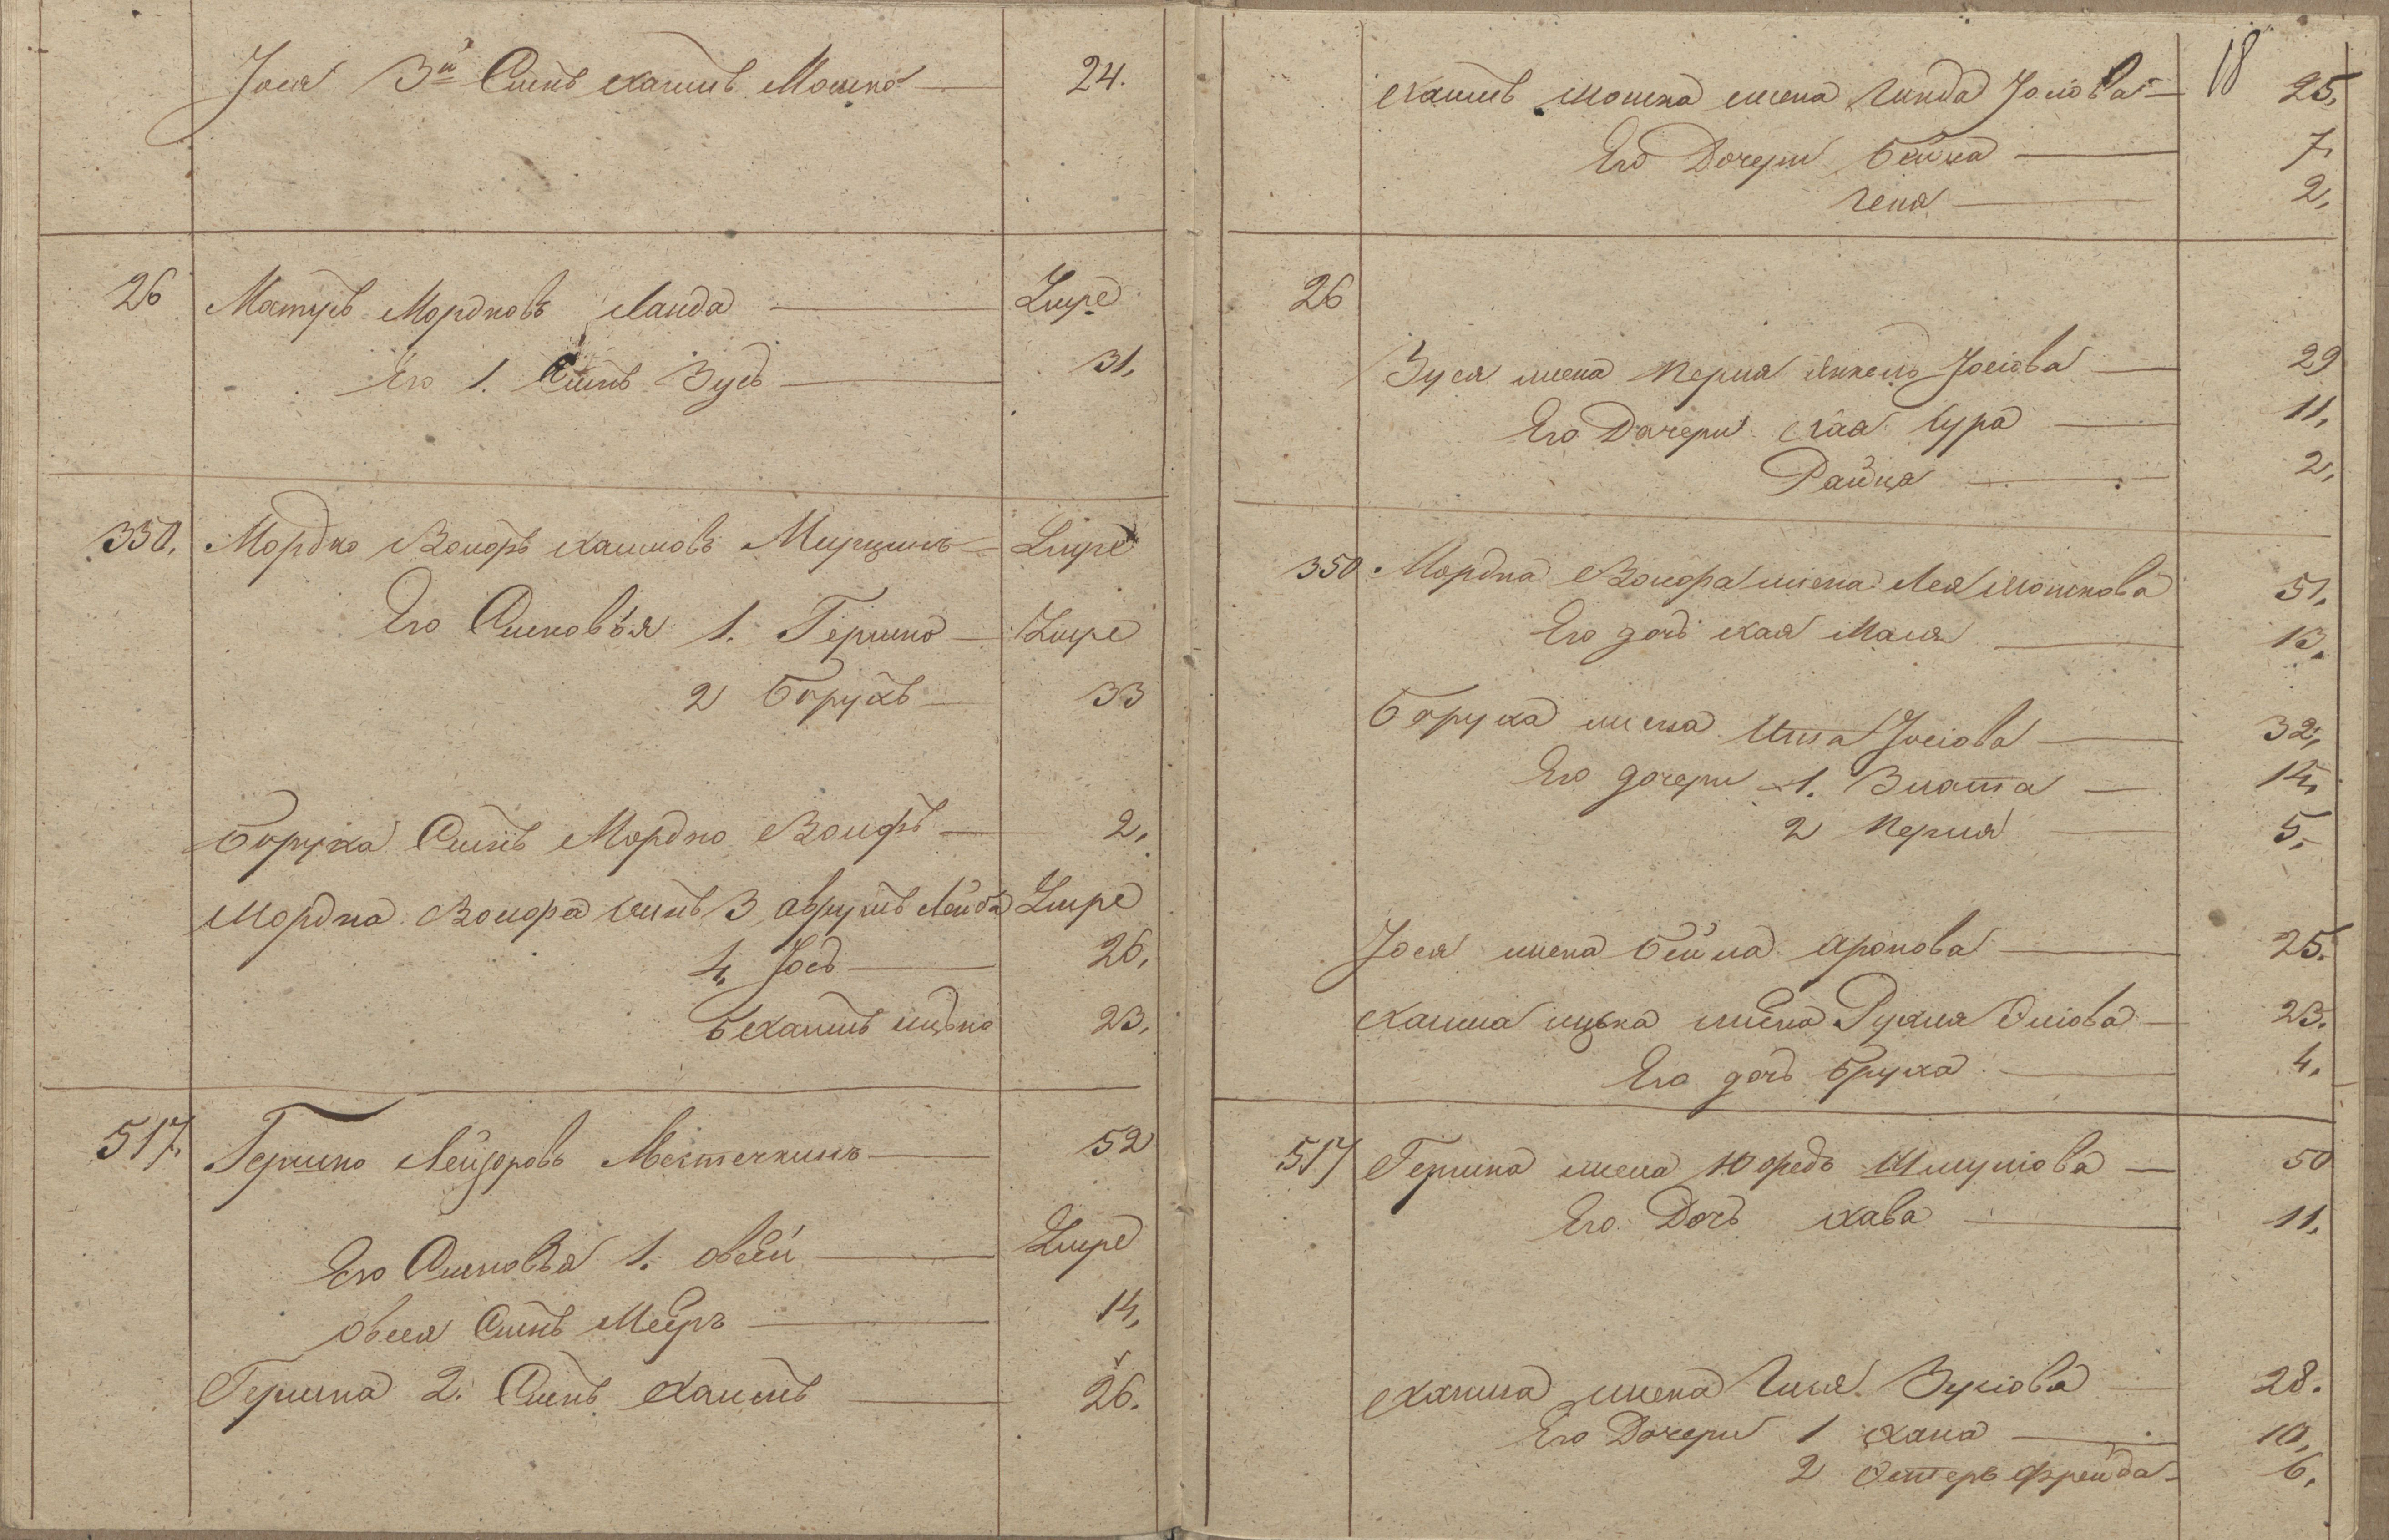 Іося 3й Сынъ хаимъ Мошко — 24.
26 Матусъ Мордковъ Ланда —
Его 1. Сынъ Зусь — 31.
350. Мордко Вольфъ хаимовъ
Его Сыновья 1. Гершко —
2 Борухъ — 33
Боруха Сынъ Мордко Вольфъ — 2.
Мордка Вольфа сынъ 3 аврумъ Лейба
4. Іось — 26.
5 хаимъ ицько 23.
517. Гершко Лейзоровъ Местечкинъ — 52
Его Сыновья 1. овсей —
овсея Сынъ Мееръ — 14.
Гершка 2. Сынъ хаимъ — 26.
18
хаимъ мошка жена Гинда Іосіова — 25.
Его Дочери Бейла — 7.
Геня — 2.
26
Зуся жена Перля Янкель Іосіова — 29
Его Дочери хая сура — 11.
Райца — 2.
350 Мордка Вольфа жена Лея мошкова 51.
Его дочь хая Маля — 13.
Боруха жена Іосіова — 32.
Его дочери 1. Злата — 14.
2 Перля — 5.
Іося жена бейла аронова — 25.
хаима ицька жена Рухля 23.
Его дочь Бруха — 4.
517 Гершка жена Юдфедь Шмуліова — 50
Его Дочь хава — 11.
хаима жена Зусіова — 28.
Его Дочери 1 хана — 10.
2 Эстеръ Фрейда — 6.